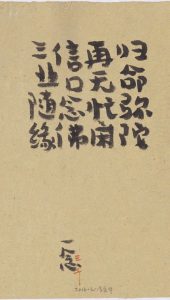 归命弥陀
再无忙闲
信口念佛
三业随缘